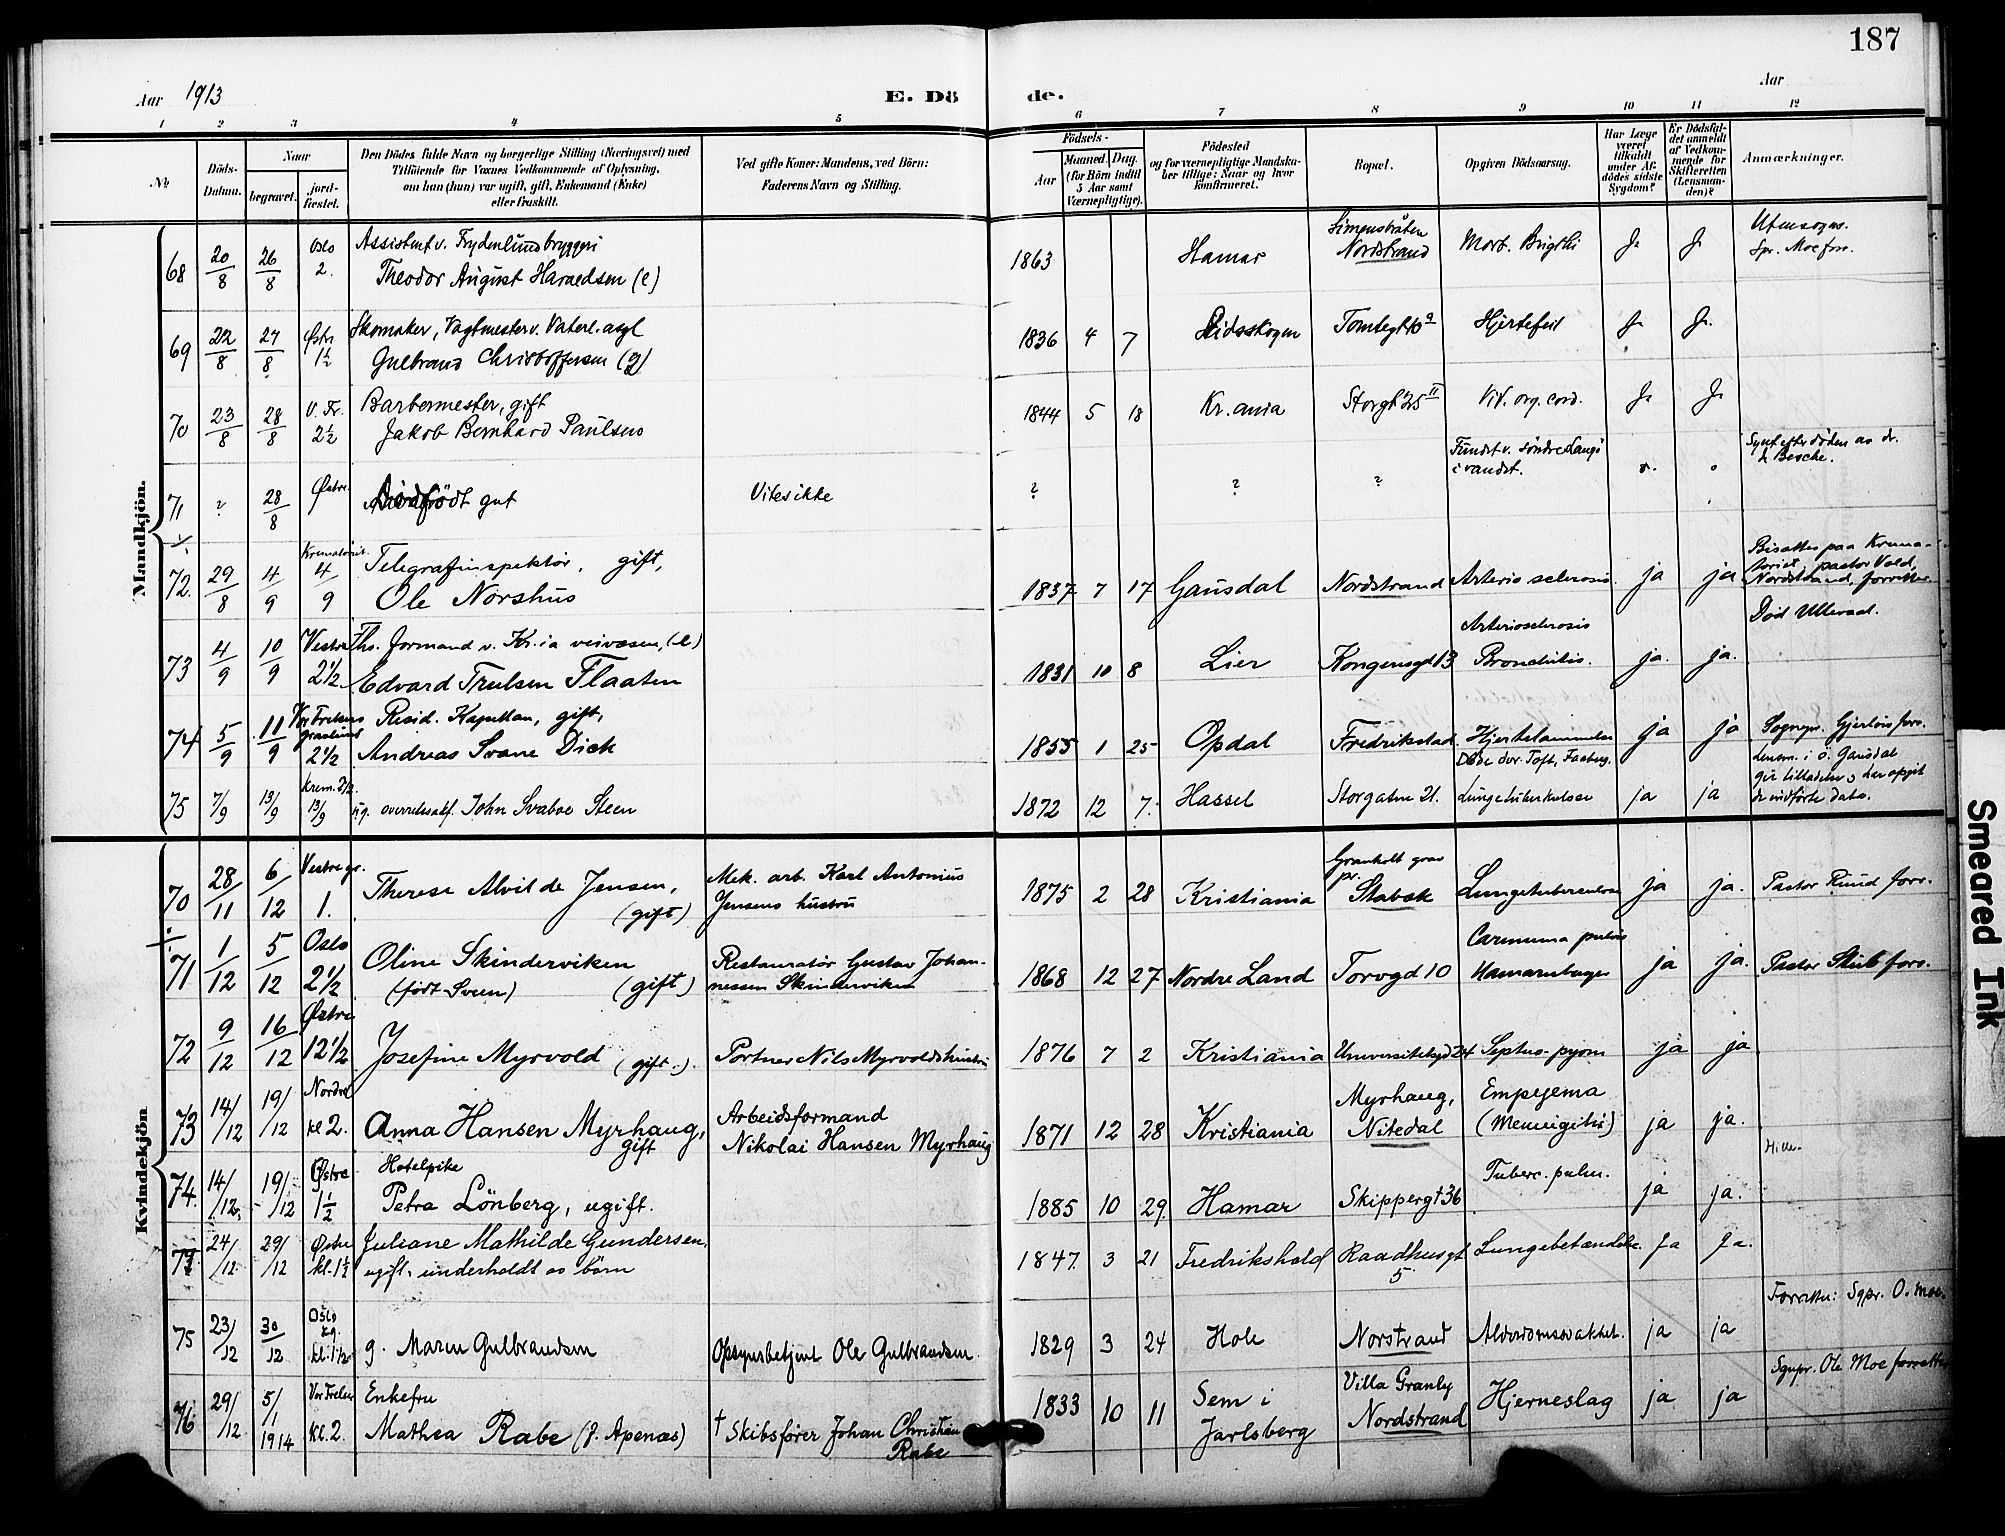 187
Aar 1913
E. Dö de.
Aar
1 2 3 4 5 6 7 8 9 10 11 12
No
Döds-Datum.
Naar
begravet.
jord-fæstet.
Den Dödes fulde Navn og borgerlige Stilling (Næringsvei) med
Tilföiende for Voxnes Vedkommende af Oplysning,
om han (hun) var ugift, gift, Enkemand (Enke)
eller fraskilt.
Ved gifte Koner: Mandens, ved Börn:
Faderens Navn og Stilling.
Födsels-
Aar
Maaned. Dag.
(for Börn indtil
5 Aar samt
Værnepligtige).
Födested
og for værnepligtige Mandska-
ber tillige: Naar og hvor
konfirmeret.
Bopæl.
Opgiven Dödsaarsag.
Har Læge
været
tilkaldt
under Af-
dödes sidste
Sygdom?
Er Dödsfal-
det anmeldt
af Vedkom-
mende for
Skifteretten
(Lensman-
den)?
Anmærkninger.
Mandkjön.
68 20/8 26/8 Oslo 2. Assistent v. Frydenlunds bryggeri
Theodor August Haraldsen (e) 1863 Hamar Simenstråten Nordstrand Morb. Brigthi Ja Ja Utensogns. Spr. Moe forr.
69 22/8 27/8 Østre 1½ Skomaker, Vagtmester v. Vaterl. asyl
Gulbrand Christoffersen (g) 1836 4 7 Eidsskogen Tomtegt 10 a Hjertefeil Ja Ja.
70 23/8 28/8 V. Fr. 2½ Barbermester, gift
Jakob Bernhard Paulsen 1844 5 18 Kr.ania Storgt 25 II Vit. org. cord. Ja Ja
71 ? 28/8 Østre. Dödfödt gut Vites ikke ? ? ? Fundet v. søndre Langö i vandet. Synet efter döden av dr.
72. 29/8 4/9 Krematoriet. 4/9 Telegrafinspektør, gift,
Ole Norshus 1837 7 17 Gausdal Nordstrand Arterio sclerosis ja ja Bisattes paa Krema-
toriet, pastor Vold, Nordstrand, forrettet.
73 4/9 10/9 Vestre 2½. Ths. formand v. Kr.ia veivæsen, (e)
Edvard Trulsen Flaaten 1831 10 8 Lier Kongensgd 13 Arteriosclerosis
Bronchitis. ja. ja. Död Ullevaal.
74 5/9 11/9 Vor Frelsers gravlund 2½ Resid. Kapellan, gift,
Andreas Svane Dick 1855 1 25 Opdal Fredrikstad. Hjertelammelse
Døde dor Toft, Faaberg. ja ja Sognepr. Gjerlöis forr.
Lensm. i ö. Gausdal
gir tilladelse, har opgit
de indförte data.
75 7/9 13/9 Krem. 13/9 ug. overretssakf. John Svaboe Steen 1872 12 7. Hassel Storgaten 21. Lungetuberkulose ja ja
Kvindekjön
70 28/11 6/12 Vestre gr. 1. Therese Alvilde Jensen,
(gift) Mek. arb. Karl Antonius
Jensens hustru 1875 2 28 Kristiania Granholt grav pr. Stabæk Lungetuberculose ja ja. Pastor Ruud forr.
71 1/12 5/12 Oslo 2½ Oline Skinderviken
(født Sveen) (gift) Restauratør Gustav Johan-
nessen Skinderviken 1868 12 27 Nordre Land Torvgd 10 ja ja. Pastor Skib forr.
72 9/12 16/12 Østre 12½ Josefine Myrvold (gift.) Portner Nils Myrvolds hustru 1876 7 2 Kristiania Universitetsgd 24 Septus-pyom ja ja
73 14/12 19/12 Nordre kl 2. Anna Hansen Myrhaug,
gift Arbeidsformand
Nikolai Hansen Myrhaug 1871 12 28 Kristiania Myrhaug,
Nitedal Empyema
(Meningitis) ja ja.
74. 14/12. 19/12 Østre 1½ Hotelpike
Petra Lönberg, ugift. 1885 10 29. Hamar Skippergt 36 Tuberc. pulm. ja ja.
24/12 29/12 Østre kl. 1½ Juliane Mathilde Gundersen,
ugift. underholdt av barn 1847. 3 21 Fredrikshald Raadhusgt 5 Lungebetændelse. Ja Ja.
75 23/12 30/12 Oslo kg. kl. 1½ g. Maren Gulbrandsen Opsynsbetjent Ole Gulbrandsen. 1829 3 24 Hole Norstrand Alderdomssvakhet. ja ja Forretter: Sgpr. O. Moe.
76 29/12 5/1 1914 Vor Frelser kl. 2. Enkefru
Mathea Rabe (f. Apenæs) † Skibsfører Johan Christian
Rabe 1833 10 11 Sem i
Jarlsberg Villa Granly
Nordstrand Hjerneslag ja ja Sgnpr. Ole Moe forretter
Smeared Ink